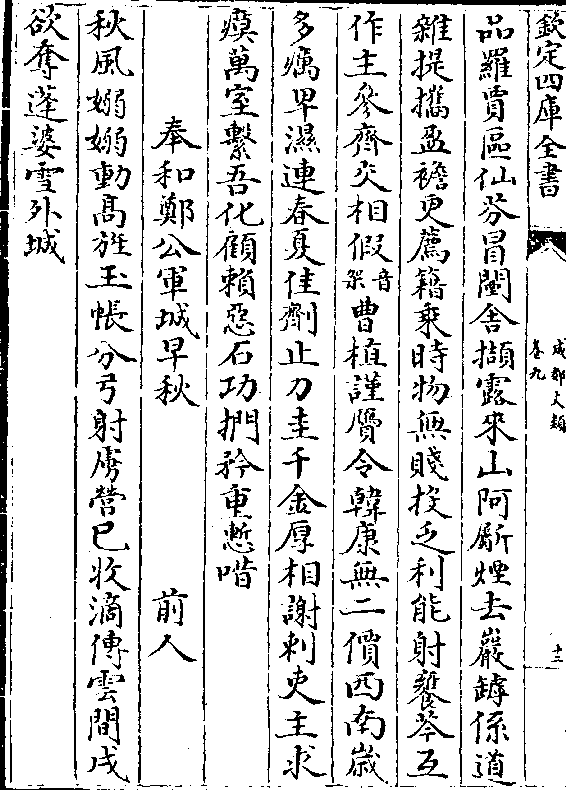 欽定四庫全書
成都文類
卷九
十三
品羅賈區仙芬冒闤舍擷露來山阿斸煙去巖罅係道
雜提攜盈襜更薦籍乘時物無賤投乏利能射饔芩互
作主參齊交相假音架曹植謹贋令韓康無二價西南歲
多癘卑濕連春夏佳劑止刀圭千金厚相謝刺史主求
瘼萬室繫吾化顧賴惡石功捫矜重慙喈
奉和鄭公軍城早秋　前人
秋風嫋嫋動高旌玉帳分弓射虜營已收滴博雲間戍
欲奪蓬婆雪外城